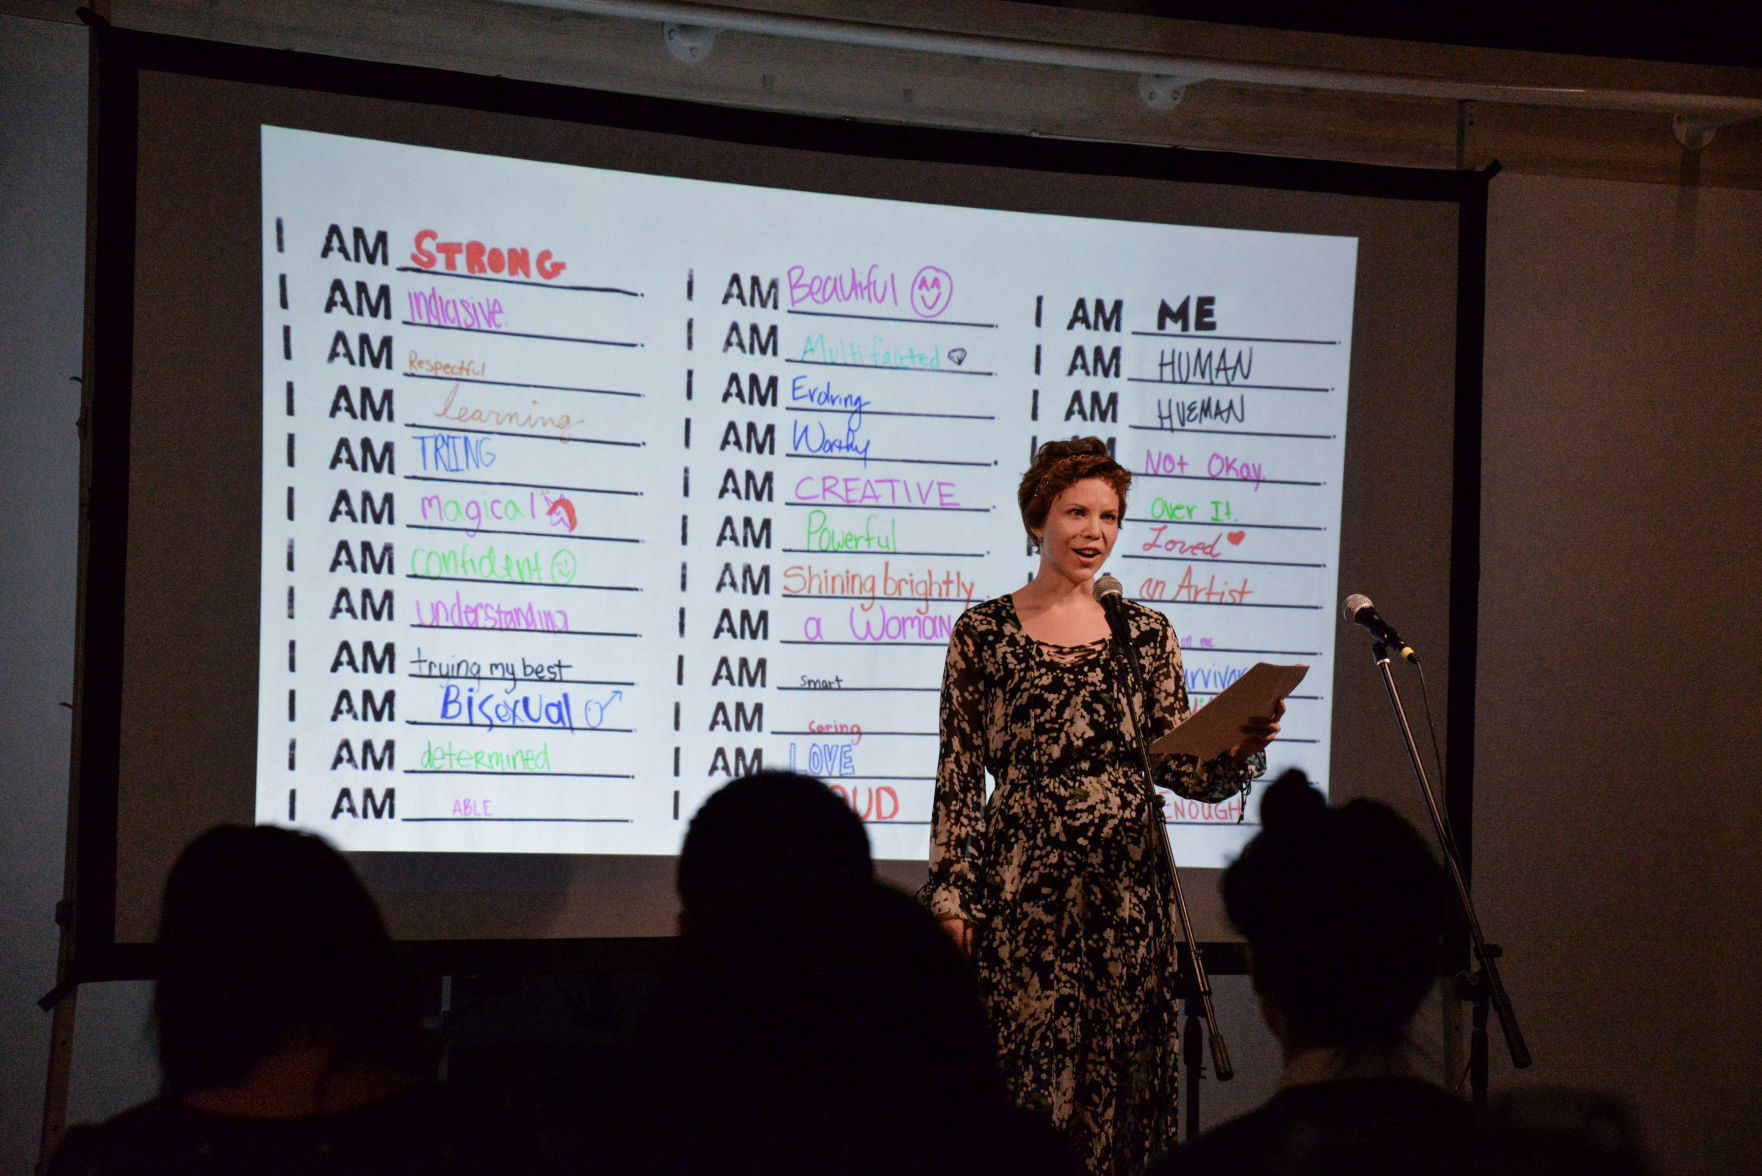 I AM STRONG.
I AM Inclusive.
I AM Respectful.
I AM learning.
I AM TRYING.
I AM magical.
I AM confident.
I AM understanding.
I AM trying my best.
I AM Bisexual.
I AM determined.
I AM ABLE.
I AM Beautiful.
I AM Multifaceted.
I AM Evolving.
I AM Worthy.
I AM CREATIVE.
I AM Powerful.
I AM Shining brightly.
I AM a Woman
I AM smart
I AM
I AM LOVE
I
I AM ME.
I AM HUMAN.
I AM HUEMAN.
Not Okay.
Over It.
Loved
an Artist
ENOUGH